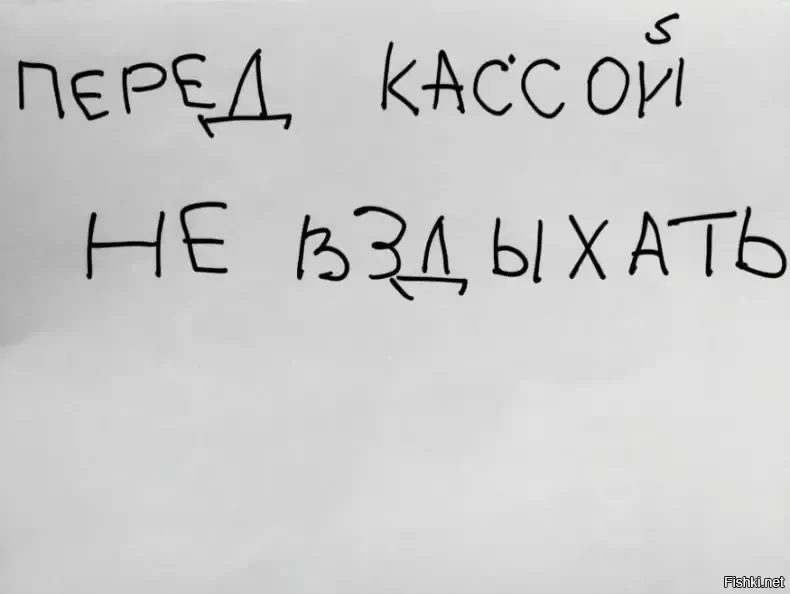 ПЕРЕД КАССОЙ
НЕ ВЗДЫХАТЬ
Fishki.net